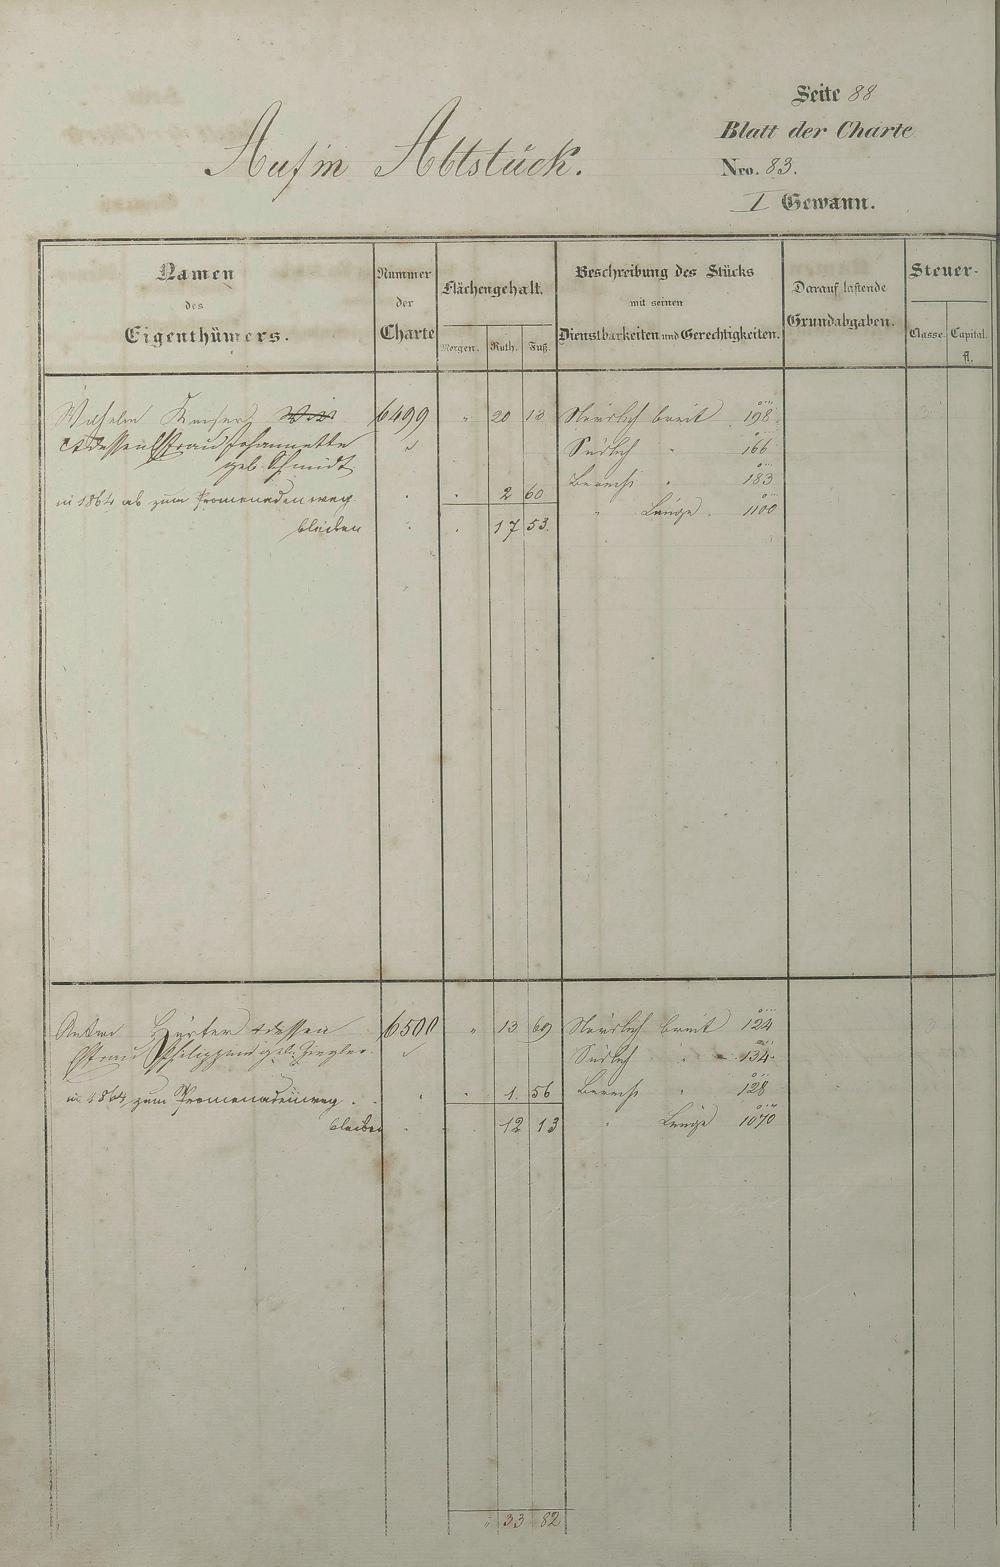 Seite 88
Blatt der Charte
Nro. 83.
I Gewann.
Auf'm Abtstück.
Namen
des
Eigenthümers.
Nummer
der
Charte
Flächengehalt.
Morgen. Ruth. Fuß.
Beschreibung des Stücks
mit seinen
Dienstbarkeiten und Gerechtigkeiten.
Darauf lastende
Grundabgaben.
Steuer-
Classe. Capital.
fl.
Wilhelm 6499 " 20 13 Nördlich breit 198
dessen Ehefrau Johannette Südlich " 166
geb. Schmidt
183
in 1864 ab zum Promenadenweg " " 2 60
Länge 1100
bleiben " " 17 53.
Hörter & dessen 6500 " 13 69 Nördlich breit 124
Ehefrau Philippine geb. Ziegler. Südlich " 134
in 1864 zum Promenadenweg. " " 1. 56 " 128
bleiben " " 12 13 " Länge 1070
" 33 82